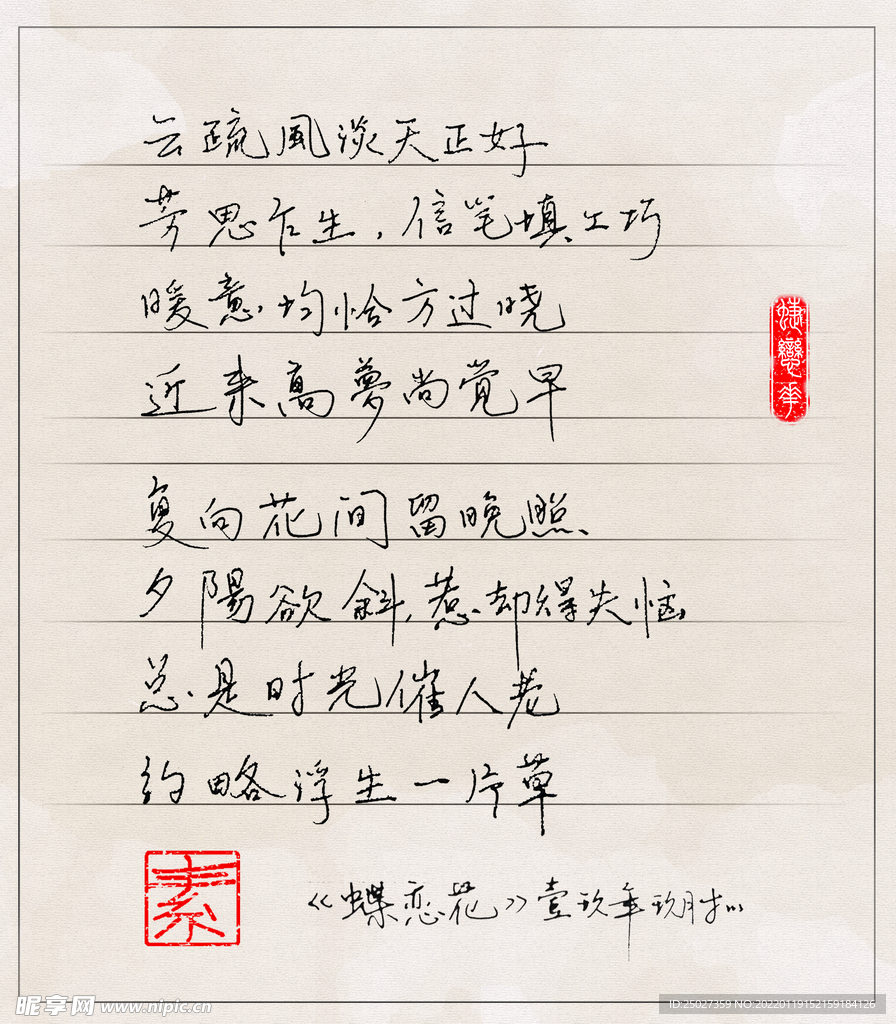 云疏風淡天正好
芳思乍生，信笔填工巧
暖意均恰方过晓
近来高夢尚觉早
复向花间留晚照
夕陽欲斜，惹却得失恼
总是时光催人老
约略浮生一片草
《蝶恋花》壹玖年玖月
蝶戀花
素
昵享网 www.nipic.cn
ID:25027359 NO:20220119152159184126